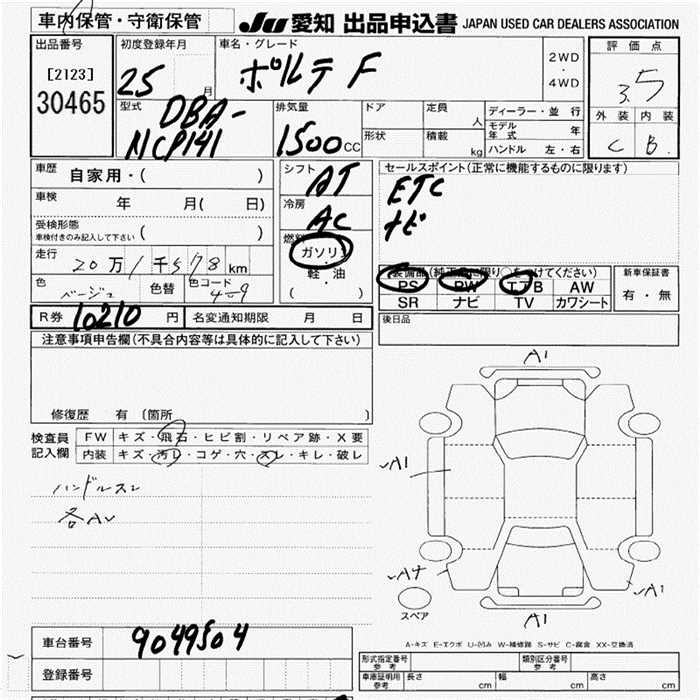 車内保管・守衛保管
JU 愛知 出品申込書 JAPAN USED CAR DEALERS ASSOCIATION
出品番号
[2123]
30465
初度登録年月
25 月
車名・グレード
ポルテ F
2WD
・
4WD
評価点
3.5
外装 内装
C B
型式
DBA-
NCP141
排気量
1500 CC
ドア
定員 人
形状
積載 kg
ディーラー・並行
モデル年式 年
ハンドル 左・右
車歴
自家用・( )
車検
年 月( 日)
受検形態
車検付きのみ記入して下さい ( )
走行
20万1千578km
色
ベージュ
色替
色コード
4e9
シフト
AT
冷房
AC
燃料
ガソリン
・
軽・油
( )
セールスポイント(正常に機能するものに限ります)
ETC
ナビ
装備品(純正品に限り○をつけてください)
PS PW エアB AW
SR ナビ TV カワシート
新車保証書
有・無
R券 10210 円 名変通知期限 月 日
後日品
注意事項申告欄(不具合内容等は具体的に記入して下さい)
修復歴 有 〔箇所 〕
検査員
記入欄
FW キズ・飛石・ヒビ割・リペア跡・X要
内装 キズ・汚レ・コゲ・穴・スレ・キレ・破レ
ハンドルスレ
各AU
A1
A1
A4
A1
A1
スペア
A-キズ E-エクボ U-凹み W-補修跡 S-サビ C-腐食 XX-交換済
車台番号
9049504
登録番号
形式指定番号
参考
類別区分番号
参考
車庫証明用
参考
長さ cm 幅 cm 高さ cm